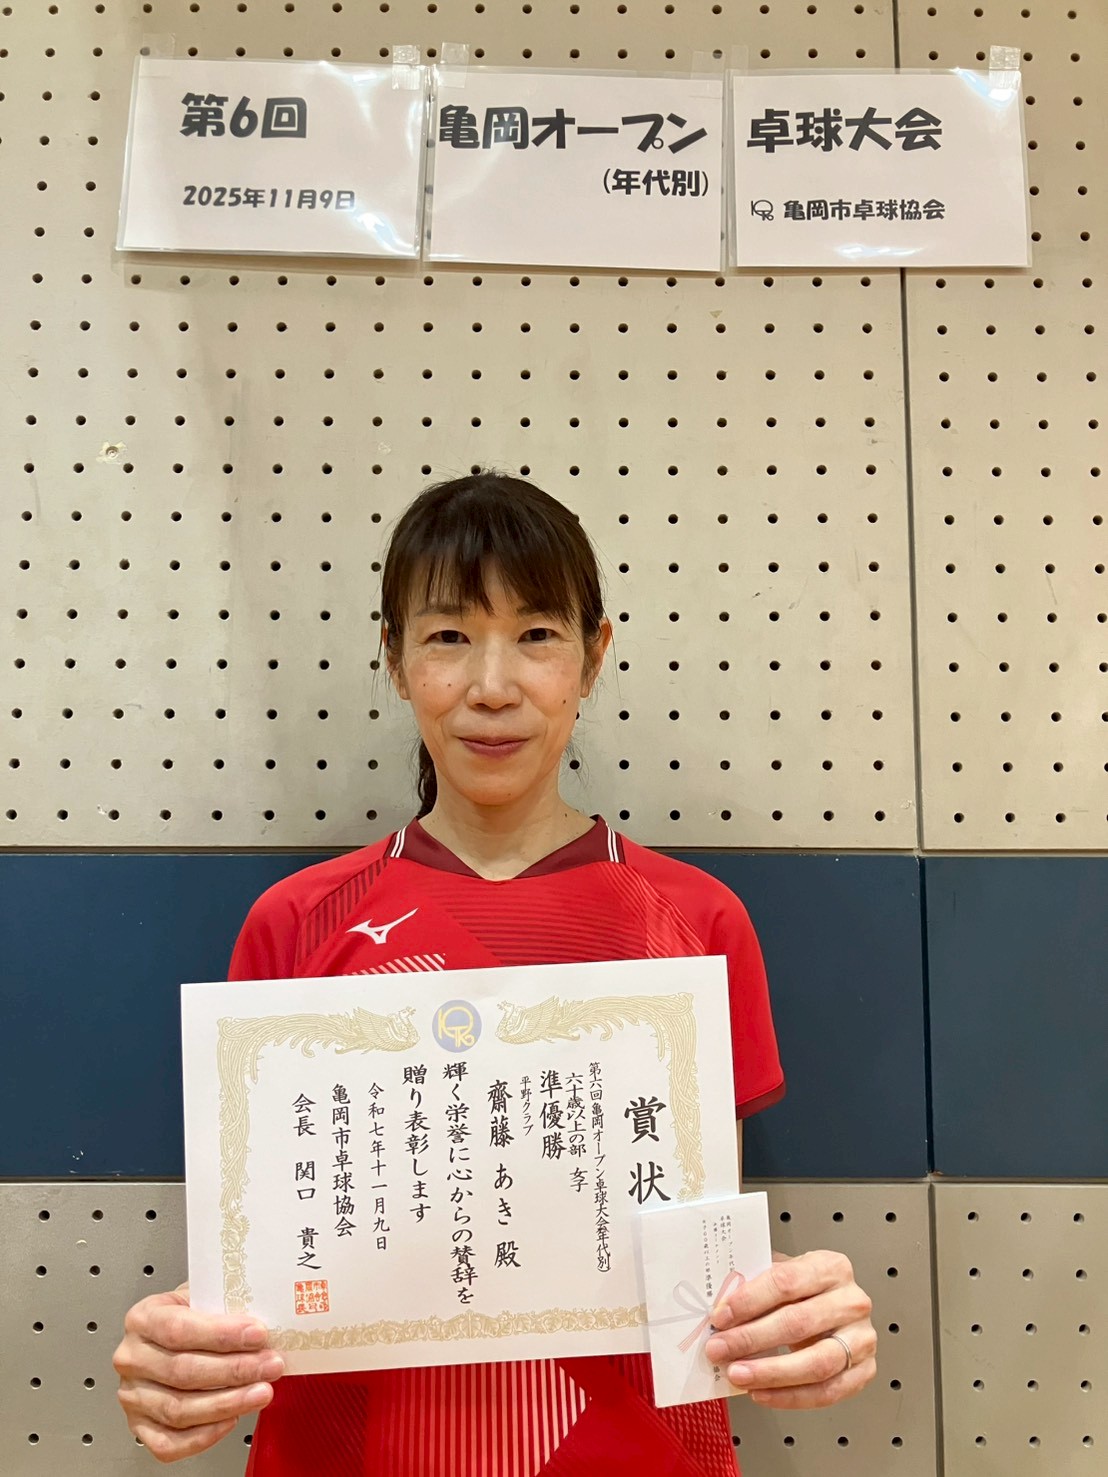 第6回
2025年11月9日
亀岡オープン
(年代別)
卓球大会
亀岡市卓球協会
賞状
第六回亀岡オープン卓球大会(年代別)
六十歳以上の部 女子
準優勝
平野クラブ
齋藤 あき 殿
輝く栄誉に心からの賛辞を
贈り表彰します
令和七年十一月九日
亀岡市卓球協会
会長 関口 貴之